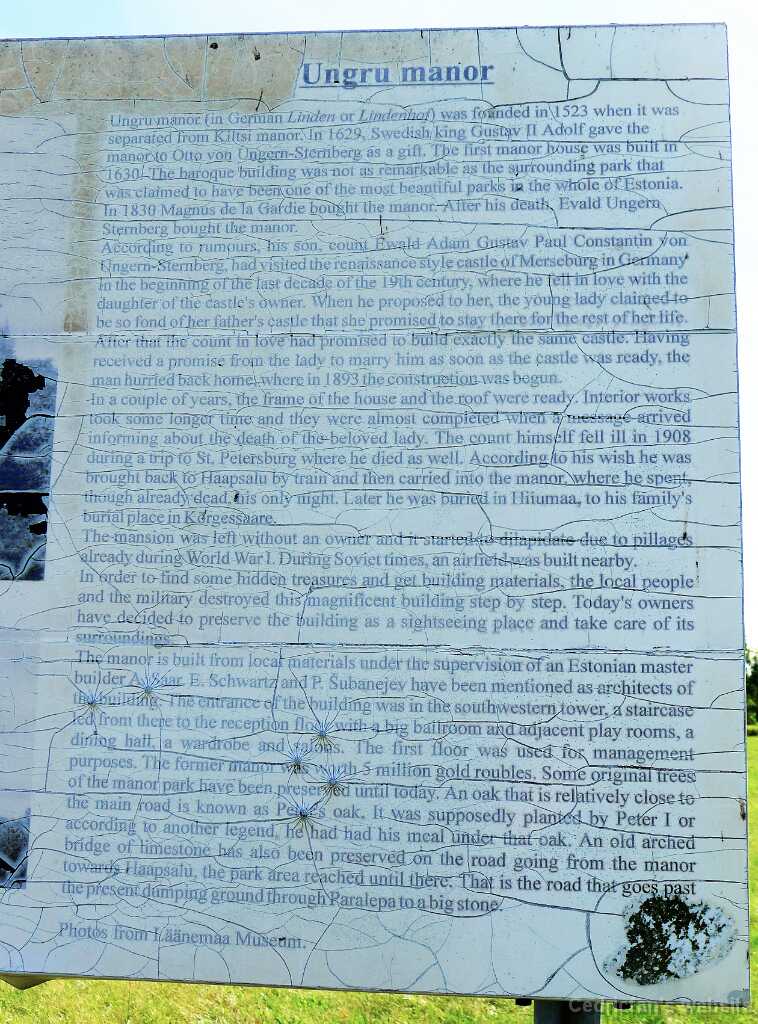 Ungru manor
Ungru manor (in German Linden or Lindenhof) was founded in 1523 when it was
separated from Kiltsi manor. In 1629, Swedish king Gustav II Adolf gave the
manor to Otto von Ungern-Sternberg as a gift. The first manor house was built in
1630. The baroque building was not as remarkable as the surrounding park that
was claimed to have been one of the most beautiful parks in the whole of Estonia.
In 1830 Magnus de la Gardie bought the manor. After his death, Evald Ungern
Sternberg bought the manor.
According to rumours, his son, count Ewald Adam Gustav Paul Constantin von
Ungern-Sternberg, had visited the renaissance style castle of Merseburg in Germany
in the beginning of the last decade of the 19th century, where he fell in love with the
daughter of the castle's owner. When he proposed to her, the young lady claimed to
be so fond of her father's castle that she promised to stay there for the rest of her life.
After that the count in love had promised to build exactly the same castle. Having
received a promise from the lady to marry him as soon as the castle was ready, the
man hurried back home, where in 1893 the construction was begun.
In a couple of years, the frame of the house and the roof were ready. Interior works
took some longer time and they were almost completed when a message arrived
informing about the death of the beloved lady. The count himself fell ill in 1908
during a trip to St. Petersburg where he died as well. According to his wish he was
brought back to Haapsalu by train and then carried into the manor, where he spent,
though already dead, his only night. Later he was buried in Hiiumaa, to his family's
burial place in Kõrgessaare.
The mansion was left without an owner and it started to dilapidate due to pillages
already during World War I. During Soviet times, an airfield was built nearby.
In order to find some hidden treasures and get building materials, the local people
and the military destroyed this magnificent building step by step. Today's owners
have decided to preserve the building as a sightseeing place and take care of its
surroundings.
The manor is built from local materials under the supervision of an Estonian master
builder A. Saar. E. Schwartz and P. Šubanejev have been mentioned as architects of
the building. The entrance of the building was in the southwestern tower, a staircase
led from there to the reception floor with a big ballroom and adjacent play rooms, a
dining hall, a wardrobe and salons. The first floor was used for management
purposes. The former manor was worth 5 million gold roubles. Some original trees
of the manor park have been preserved until today. An oak that is relatively close to
the main road is known as Peter's oak. It was supposedly planted by Peter I or
according to another legend, he had had his meal under that oak. An old arched
bridge of limestone has also been preserved on the road going from the manor
towards Haapsalu, the park area reached until there. That is the road that goes past
the present dumping ground through Paralepa to a big stone.
Photos from Läänemaa Museum.
Cedrician's website